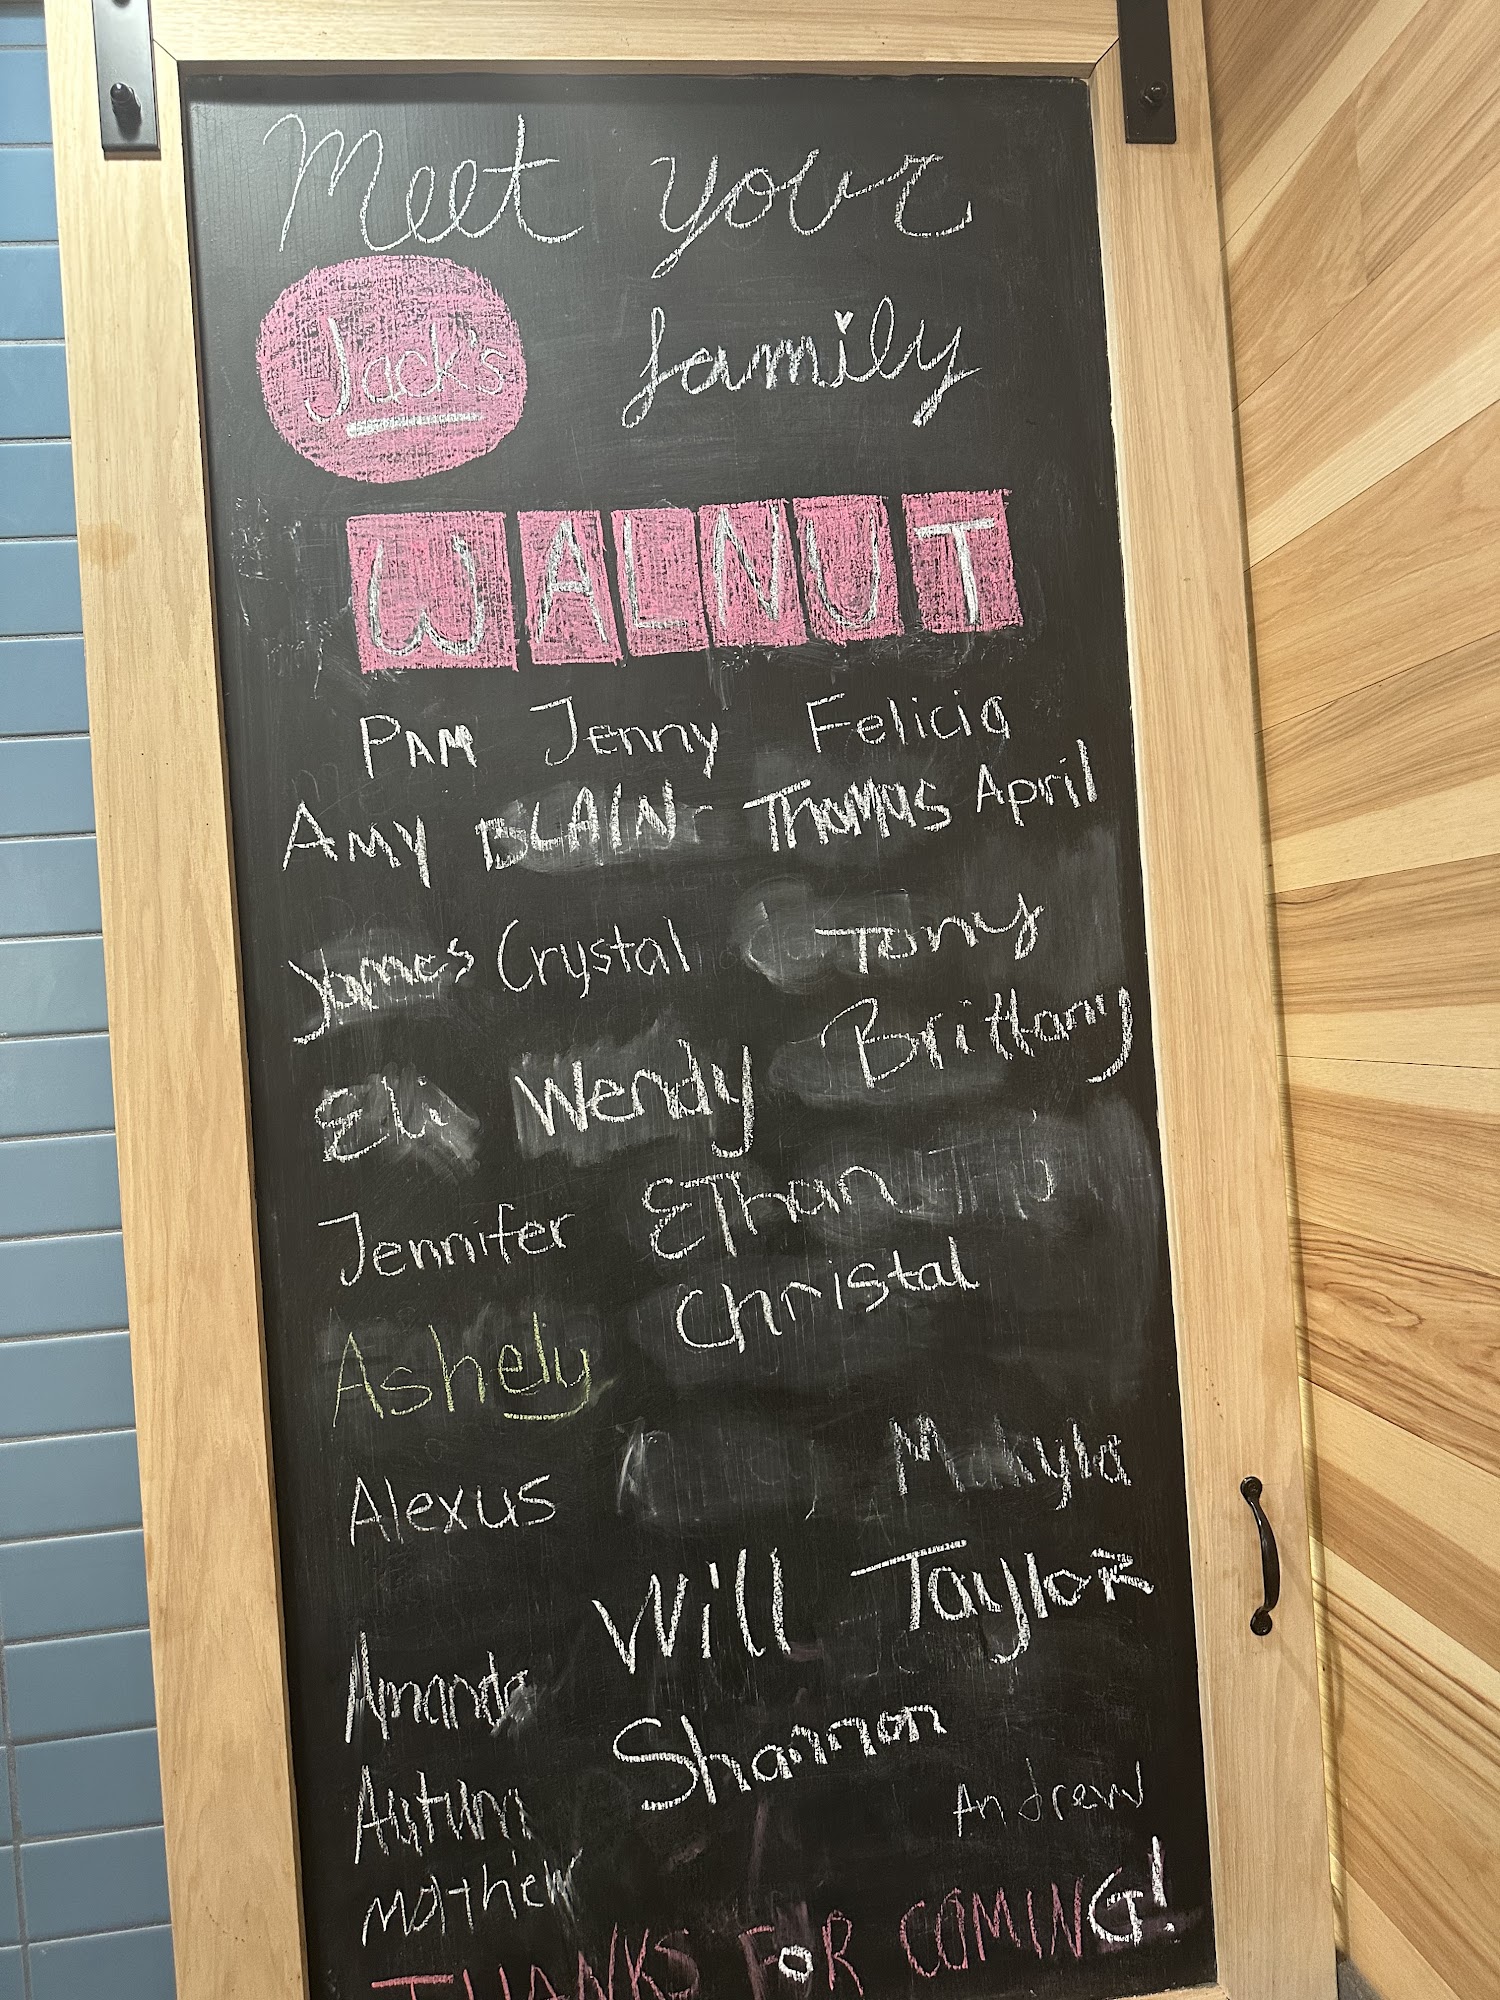 Meet your
Jack's family
WALNUT
PAM Jenny Felicia
AMY BLAIN Thomas April
James Crystal Tony
Eli Wendy Brittany
Jennifer EThan
Christal
Ashely
Alexus Makyla
Will Taylor
Amanda
Shannon
Autum
Andrew
mathew
THANKS FOR COMING!